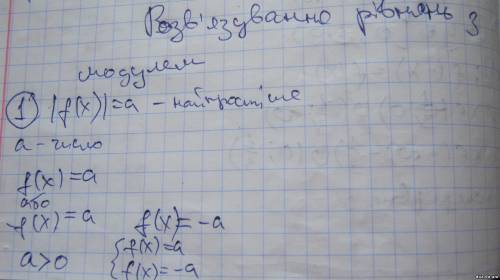 Розв'язуванно рівнянь з
модулем
① |f(x)|=a - найпростіше
a - число
f(x)=a
або
f(x)=a f(x)=-a
a>0 {f(x)=a
{f(x)=-a